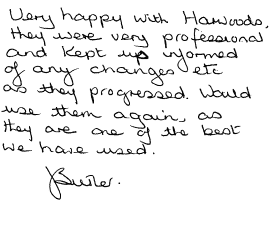 Very happy with Harwoods,
they were very professional
and kept us informed
of any changes etc
as they progressed. Would
use them again, as
they are one of the best
we have used.
JButler.